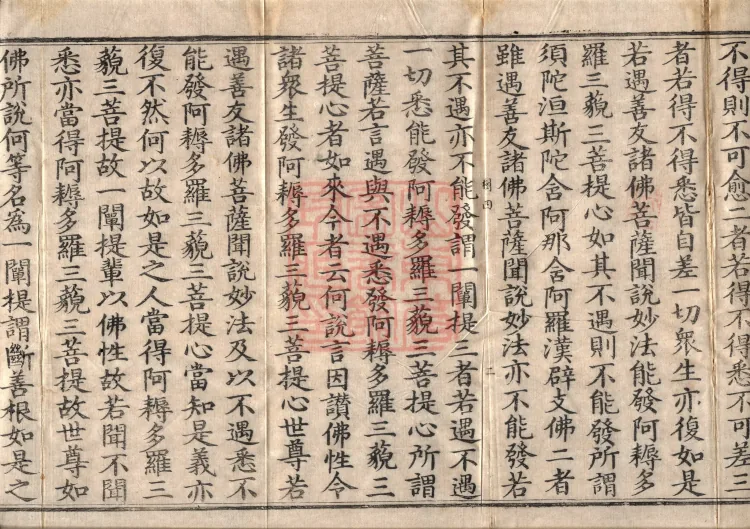 不得則不可愈二者若得不得悉不可差三
者若得不得悉皆自差一切衆生亦復如是
若遇善友諸佛菩薩聞說妙法能發阿耨多
羅三藐三菩提心如其不遇則不能發所謂
須陀洹斯陀舍阿那舍阿羅漢辟支佛二者
雖遇善友諸佛菩薩聞說妙法亦不能發若
其不遇亦不能發謂一闡提三者若遇不遇
一切悉能發阿耨多羅三藐三菩提心所謂
菩薩若言遇與不遇悉發阿耨多羅三藐三
菩提心者如來今者云何說言因讚佛性令
諸衆生發阿耨多羅三藐三菩提心世尊若
遇善友諸佛菩薩聞說妙法及以不遇悉不
能發阿耨多羅三藐三菩提心當知是義亦
復不然何以故如是之人當得阿耨多羅三
藐三菩提故一闡提輩以佛性故若聞不聞
悉亦當得阿耨多羅三藐三菩提故世尊如
佛所說何等名為一闡提謂斷善根如是之